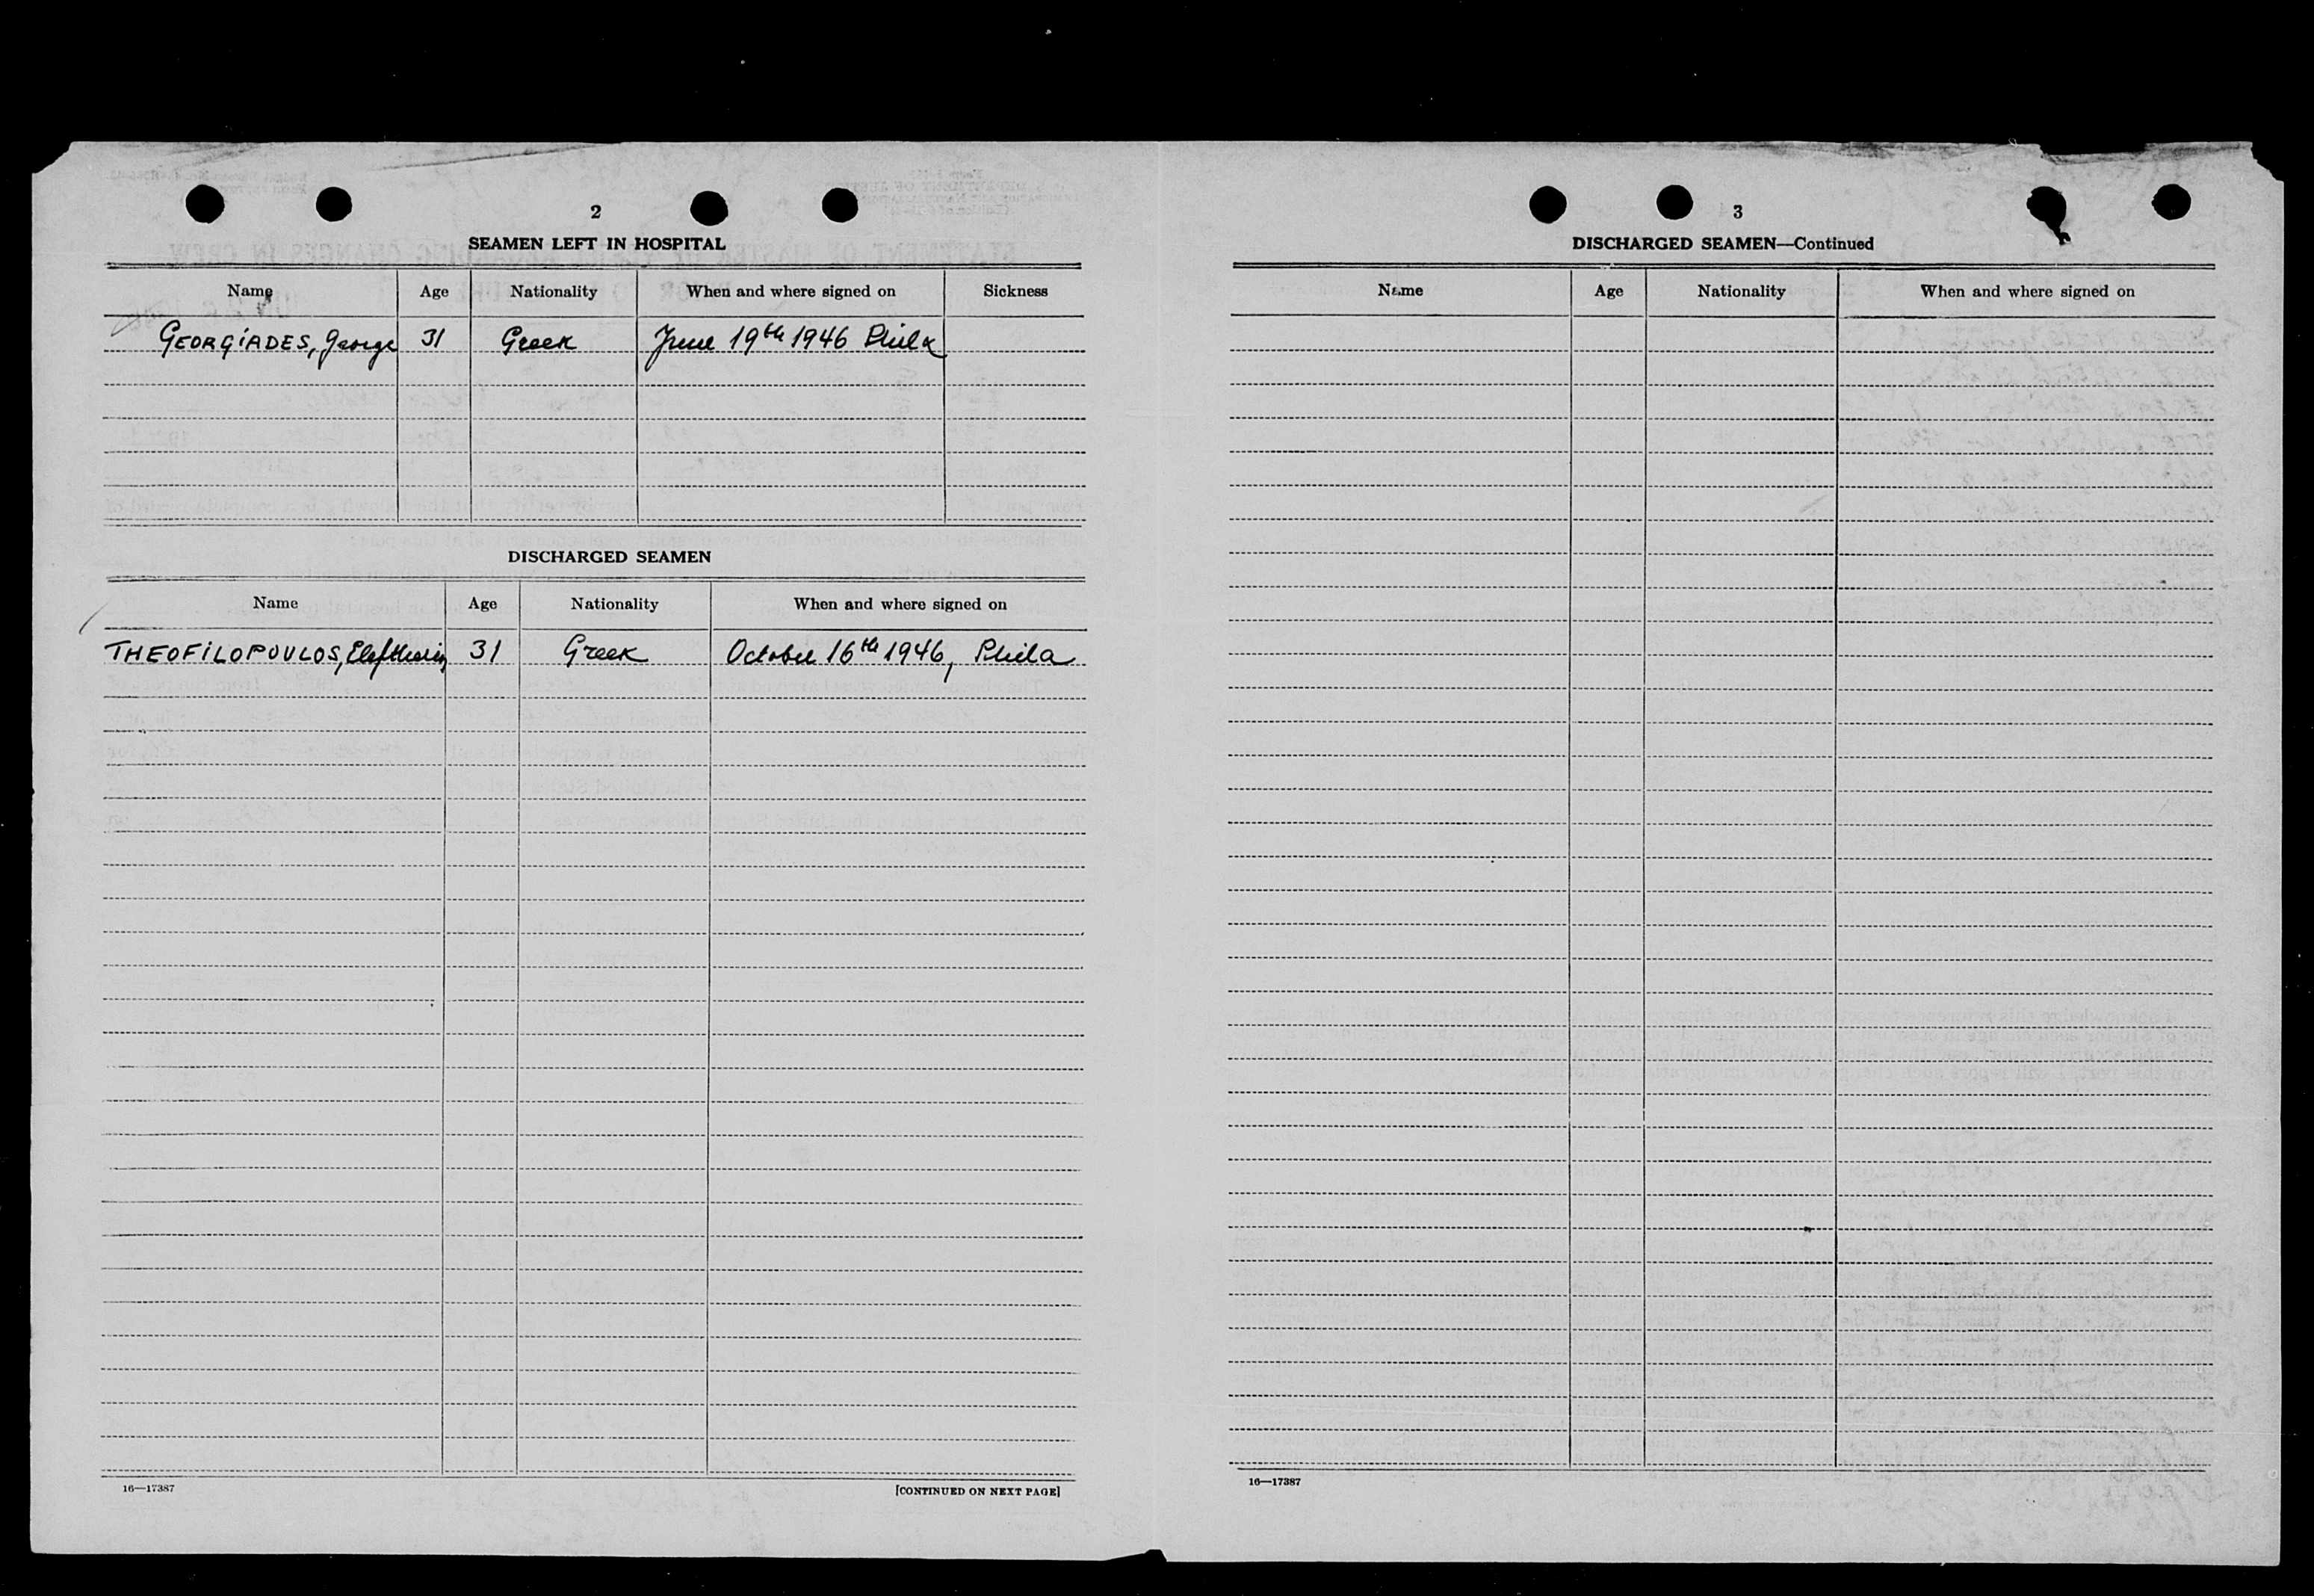 2
SEAMEN LEFT IN HOSPITAL
Name Age Nationality When and where signed on Sickness
GEORGIADES, George 31 Greek June 19th 1946 Phila
DISCHARGED SEAMEN
Name Age Nationality When and where signed on
THEOFILOPOULOS, 31 Greek October 16th 1946, Phila
16—17387 [CONTINUED ON NEXT PAGE]
3
DISCHARGED SEAMEN—Continued
Name Age Nationality When and where signed on
16—17387